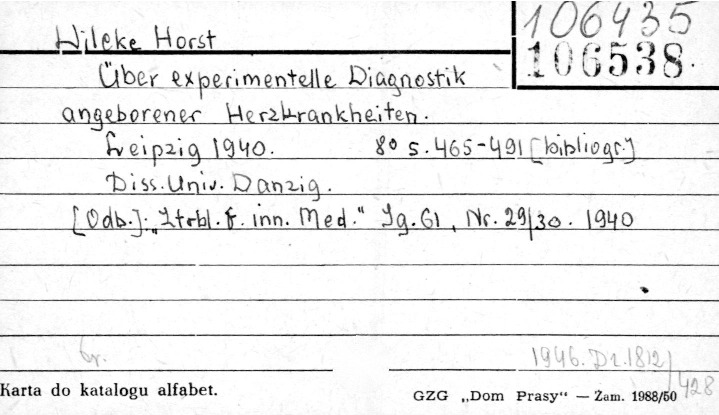 106435
Wilcke Horst
106538
Über experimentelle Diagnostik
angeborener Herzkrankheiten.
Leipzig 1940. 8° s. 465-491 [bibliogr.]
Diss. Univ. Danzig.
[Odb.]: „Ztrbl. f. inn. Med." Jg. 61, Nr. 29/30. 1940
br. 1946. Dz. 1812/428
Karta do katalogu alfabet.
GZG „Dom Prasy" — Zam. 1988/50